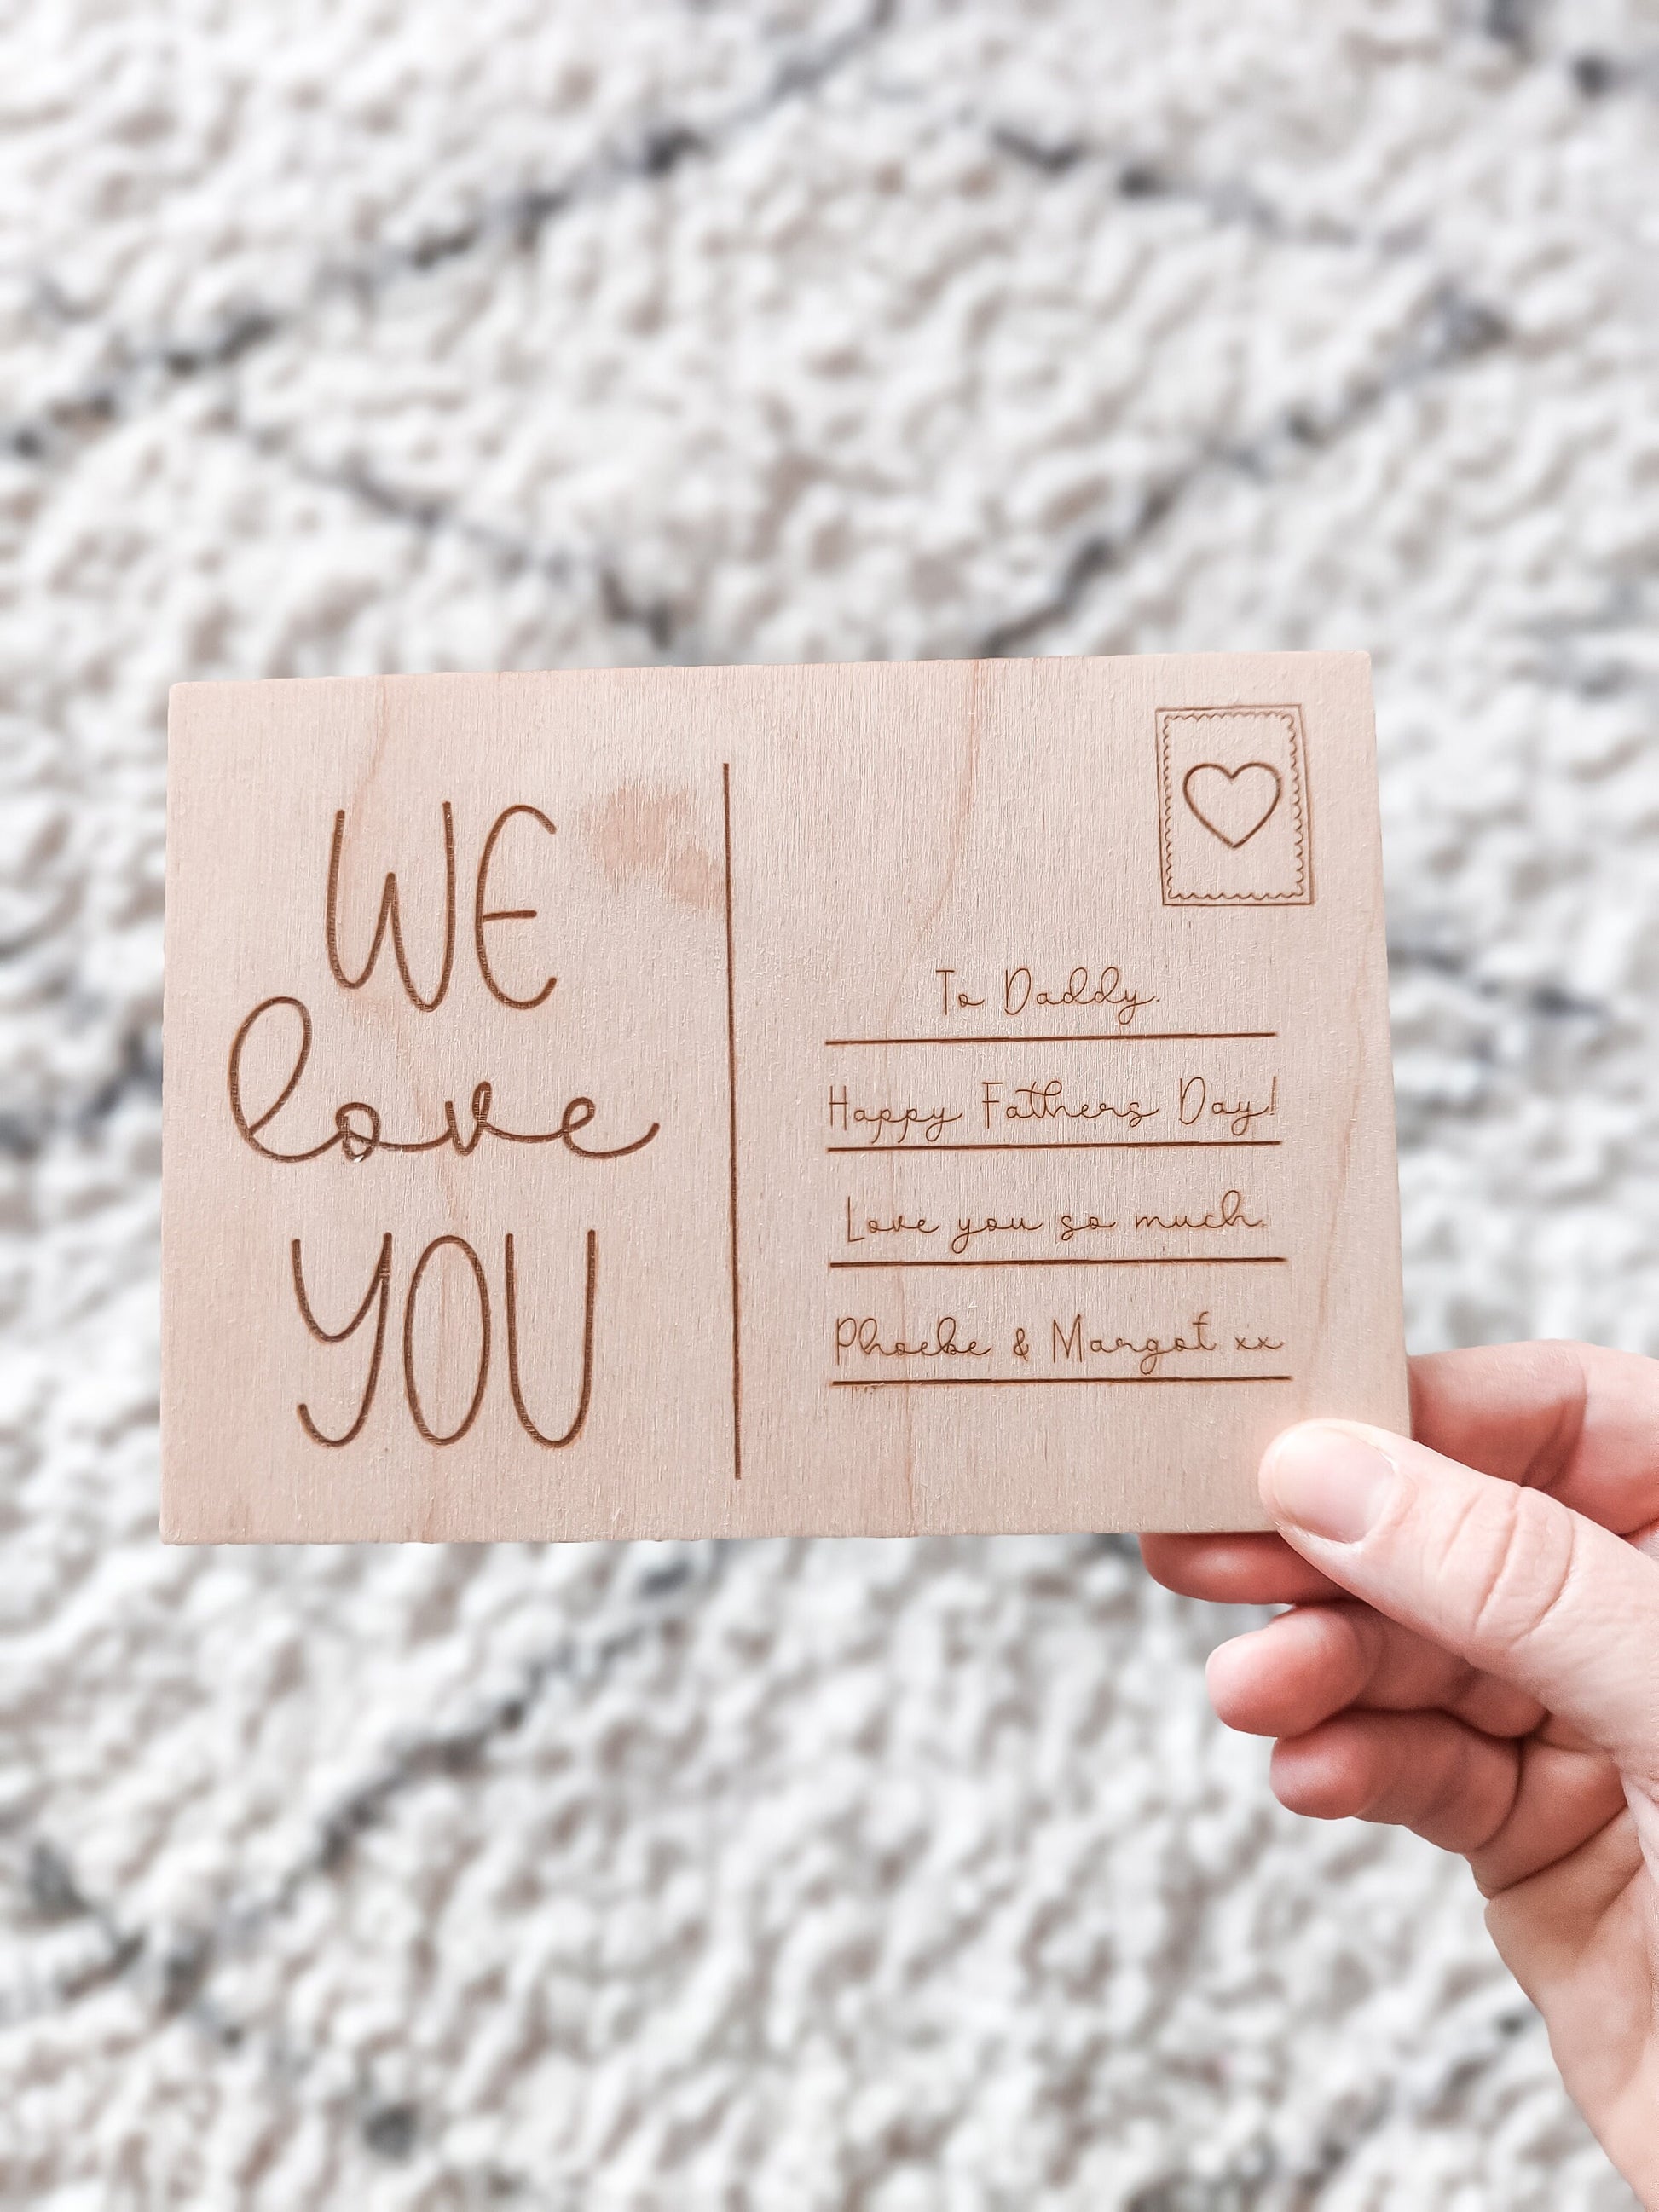 WE
love
YOU
To Daddy.
Happy Fathers Day!
Love you so much.
Phoebe & Margot xx